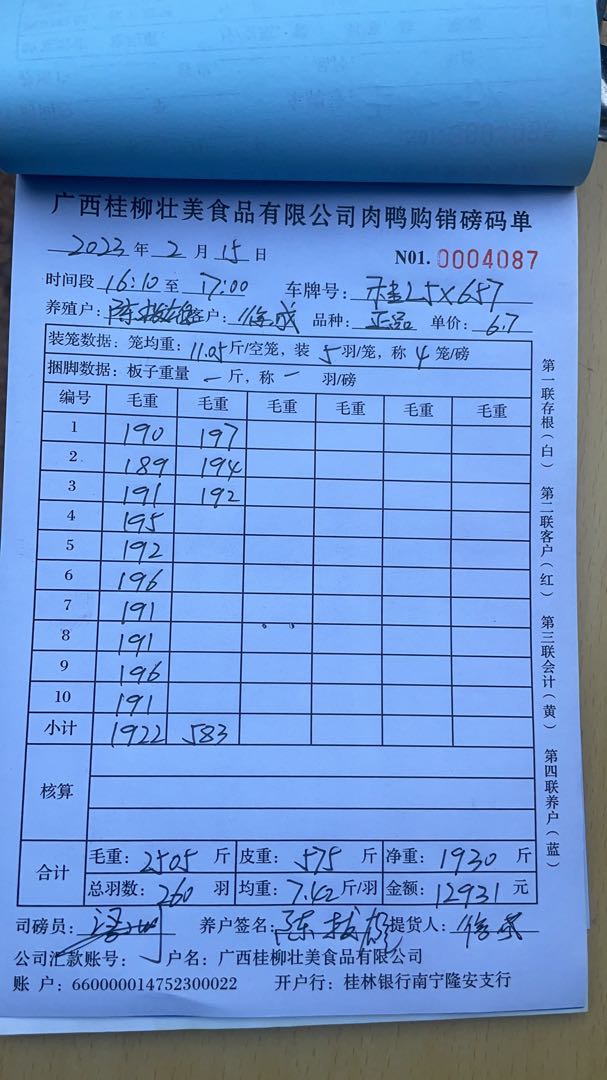 广西桂柳壮美食品有限公司肉鸭购销磅码单
2023 年 2 月 15 日 N01. 0004087
时间段 16:10 至 17:00 车牌号: 桂L5X657
养殖户: 陈 客户: 成 品种: 正品 单价: 6.7
装笼数据: 笼均重: 11.05 斤/空笼, 装 5 羽/笼, 称 4 笼/磅
捆脚数据: 板子重量 一 斤, 称 一 羽/磅
编号 毛重 毛重 毛重 毛重 毛重 毛重
1 190 197
2 189 194
3 191 192
4 195
5 192
6 196
7 191
8 191
9 196
10 191
小计 1922 583
核算
合计 毛重: 2505 斤 皮重: 575 斤 净重: 1930 斤
总羽数: 260 羽 均重: 7.42 斤/羽 金额: 12931 元
司磅员: 养户签名: 陈 提货人:
公司汇款账号: 户名: 广西桂柳壮美食品有限公司
账 户: 660000014752300022 开户行: 桂林银行南宁隆安支行
第一联存根(白) 第二联客户(红) 第三联会计(黄) 第四联养户(蓝)